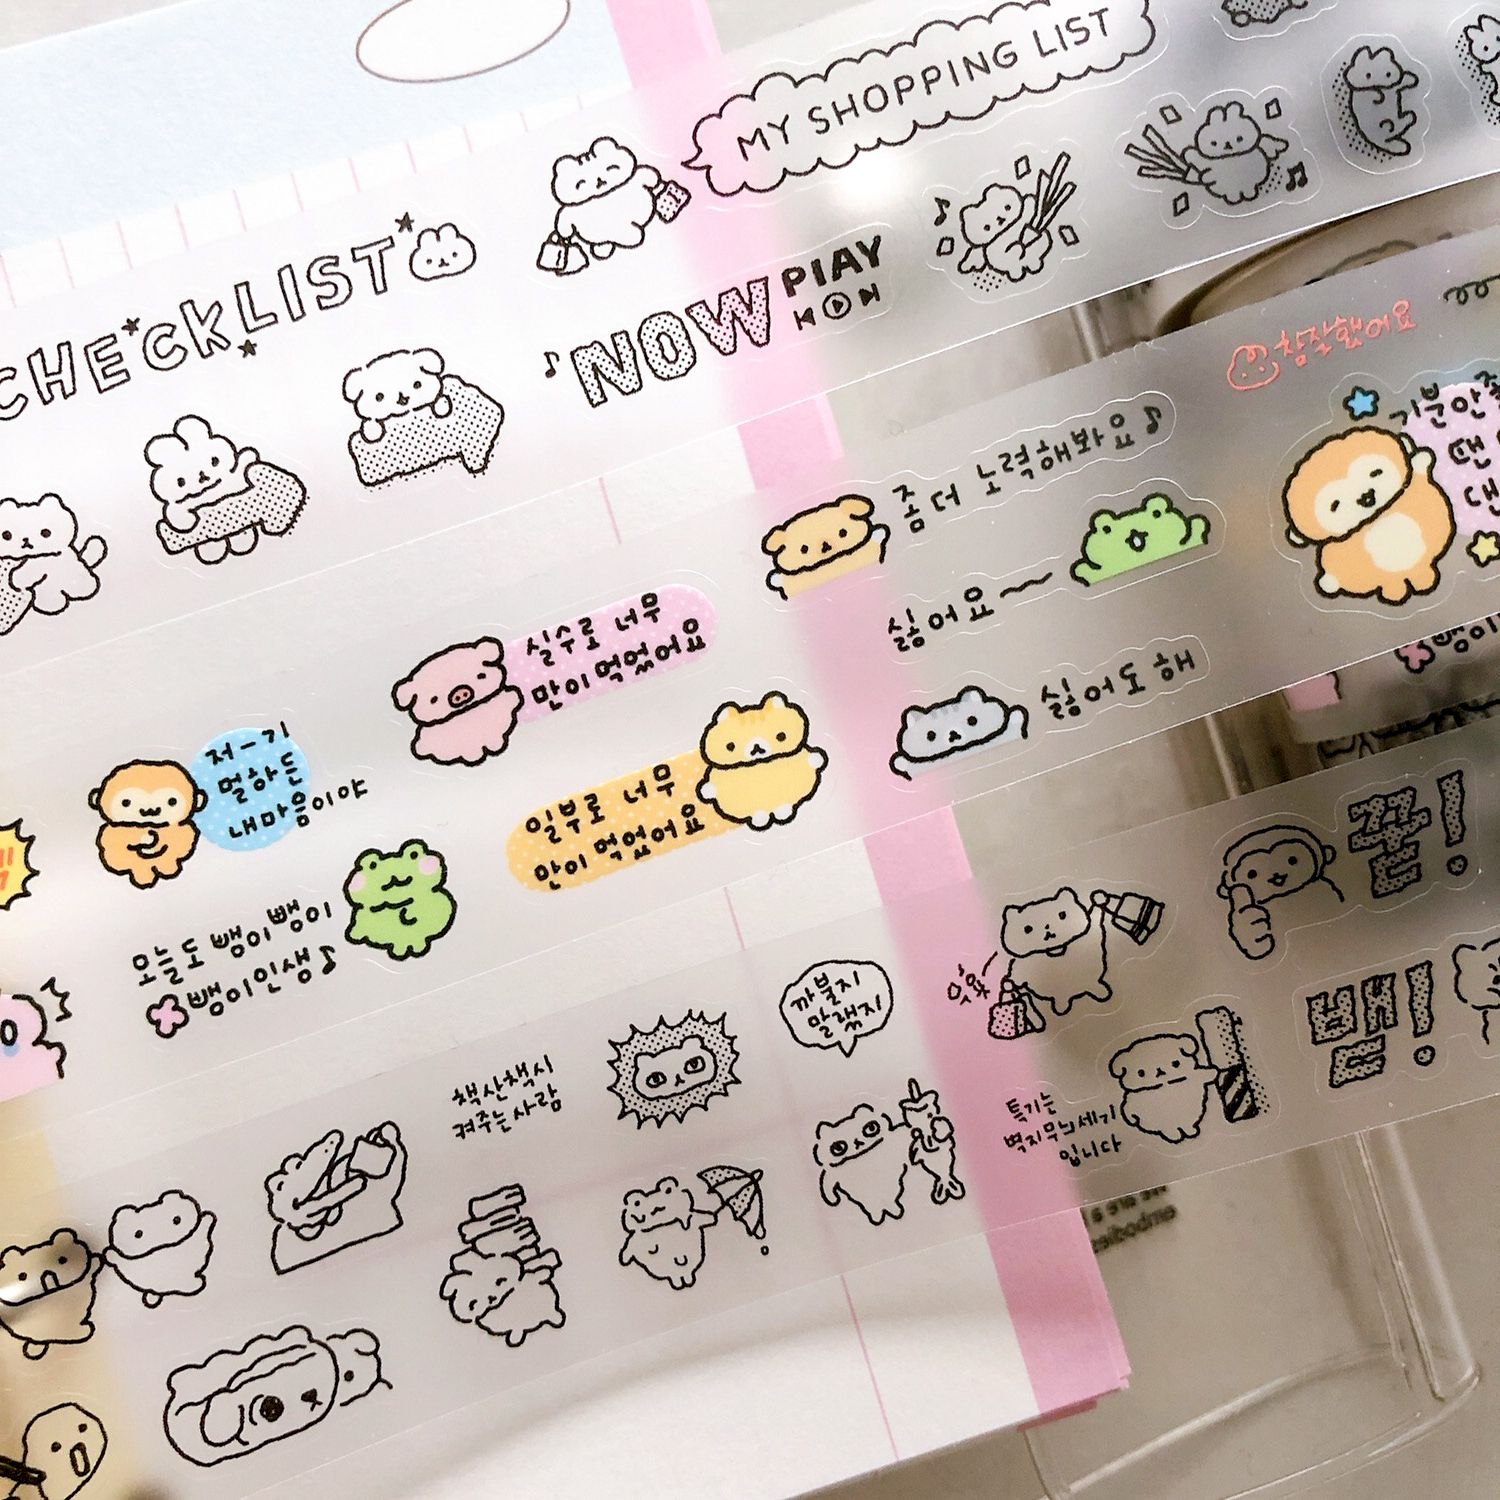 MY SHOPPING LIST
CHECKLIST
NOW PlAY
참잘했어요
기분 안
좀 더 노력해봐요♪
싫어요~
싫어도 해
실수로 너무
많이 먹었어요
저-기
멀하든
내마음이야
일부로 너무
많이 먹었어요
오늘도 뱅이뱅이
뱅이인생♪
꾿!
뱀!
까불지
말랬지
책산책시
켜주는사람
특기는
벽지무늬세기
입니다